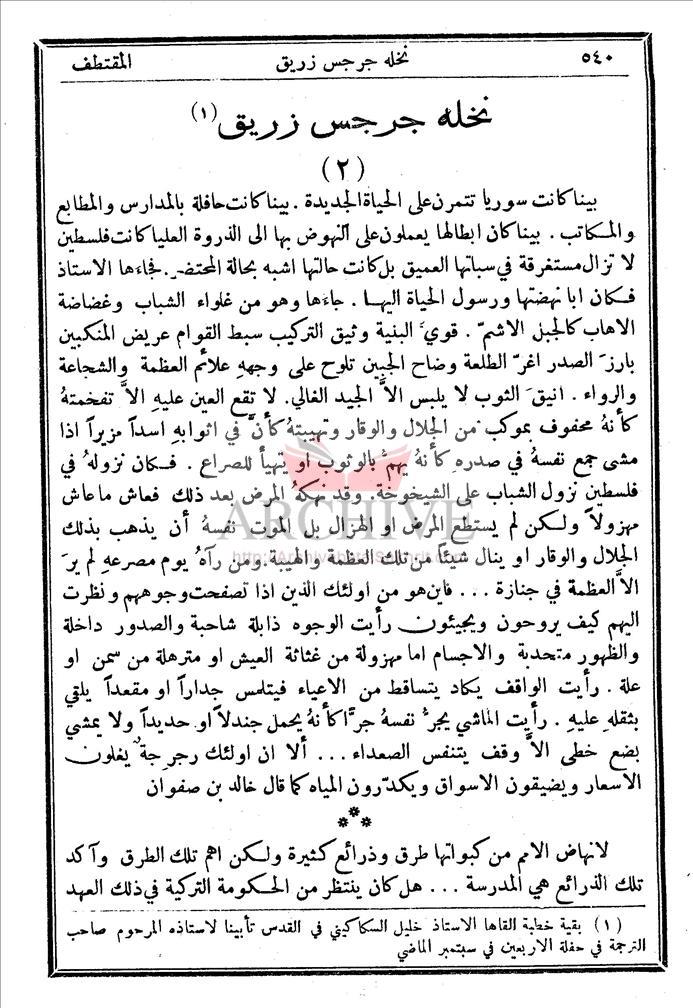 ٥٤٠ نخله جرجس زريق المقتطف
نخله جرجس زريق (١)
(٢)
بيناكانت سوريا تتمرن على الحياة الجديدة . بيناكانت حافلة بالمدارس والمطابع
والمكاتب . بيناكان ابطالها يعملون على النهوض بها الى الذروة العلياكانت فلسطين
لا تزال مستغرقة في سباتها العميق بل كانت حالتها اشبه بحالة المحتضر . فجاءها الاستاذ
فكان ابا نهضتها ورسول الحياة اليها . جاءها وهو من غلواء الشباب وغضاضة
الاهاب كالجبل الاشمّ . قويَّ البنية وثيق التركيب سبط القوام عريض المنكبين
بارزَ الصدر اغرّ الطلعة وضاح الجبين تلوح على وجههِ علائم العظمة والشجاعة
والرواء . انيقَ الثوب لا يلبس الاَّ الجيد الغالي. لا تقع العين عليهِ الاَّ تفخمتهُ
كأنهُ محفوف بموكب من الجلال والوقار وتهيبتهُ كأنَّ في اثوابهِ اسداً مزيراً اذا
مشى جمع نفسهُ في صدره كأنهُ يهمُّ بالوثوب او يتهيأ للصراع . فكان نزولهُ في
فلسطين نزول الشباب على الشيخوخة. وقد نهكهُ المرض بعد ذلك فعاش ماعاش
مهزولاً ولكن لم يستطع المرض او الهزال بل الموت نفسهُ أن يذهب بذلك
الجلال والوقار او ينال شيئاً من تلك العظمة والهيبة .ومن رآهُ يوم مصرعهِ لم يرَ
الاَّ العظمة في جنازة ... فاين هو من اولئك الذين اذا تصفحت وجوههم ونظرت
اليهم كيف يروحون ويجيئون رأيت الوجوه ذابلة شاحبة والصدور داخلة
والظهور متحدبة والاجسام اما مهزولة من غثاثة العيش او مترهلة من سمن او
علة . رأيت الواقف يكاد يتساقط من الاعياء فيتلمس جداراً او مقعداً يلقي
بثقلهِ عليهِ . رأيت الماشي يجرُّ نفسهُ جرًّا كأنهُ يحمل جندلاً او حديداً ولا يمشي
بضع خطى الاَّ وقف يتنفس الصعداء ... ألا ان اولئك رجرجةٌ يغلون
الاسعار ويضيقون الاسواق ويكدّرون المياه كما قال خالد بن صفوان
***
لانهاض الامم من كبواتها طرق وذرائع كثيرة ولكن اهم تلك الطرق وآكد
تلك الذرائع هي المدرسة ... هل كان ينتظر من الحكومة التركية في ذلك العهد
(١) بقية خطبة القاها الاستاذ خليل السكاكيني في القدس تأبينا لاستاذه المرحوم صاحب
الترجمة في حفلة الاربعين في سبتمبر الماضي
ARCHIVE